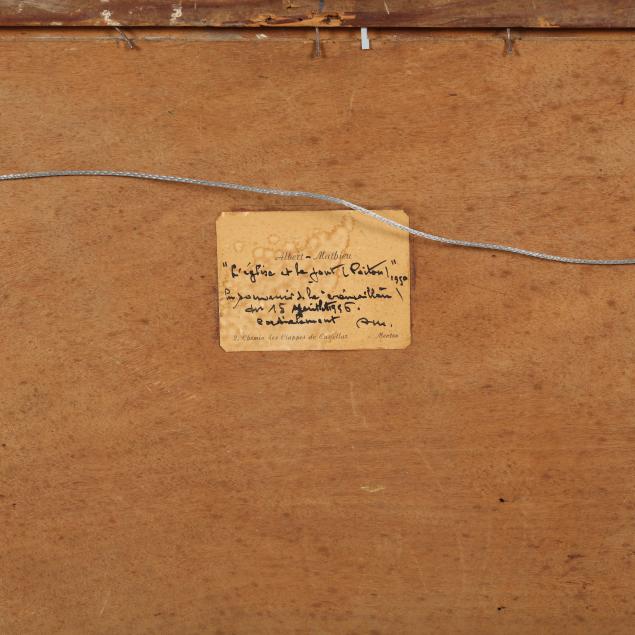 Albert-Mathieu
"L'église et le pont (Poitou)" 1950
En souvenir de la "crémaillère"
du 15 1956.
Cordialement AM.
2, Chemin des Ciappes de Castellar - Menton